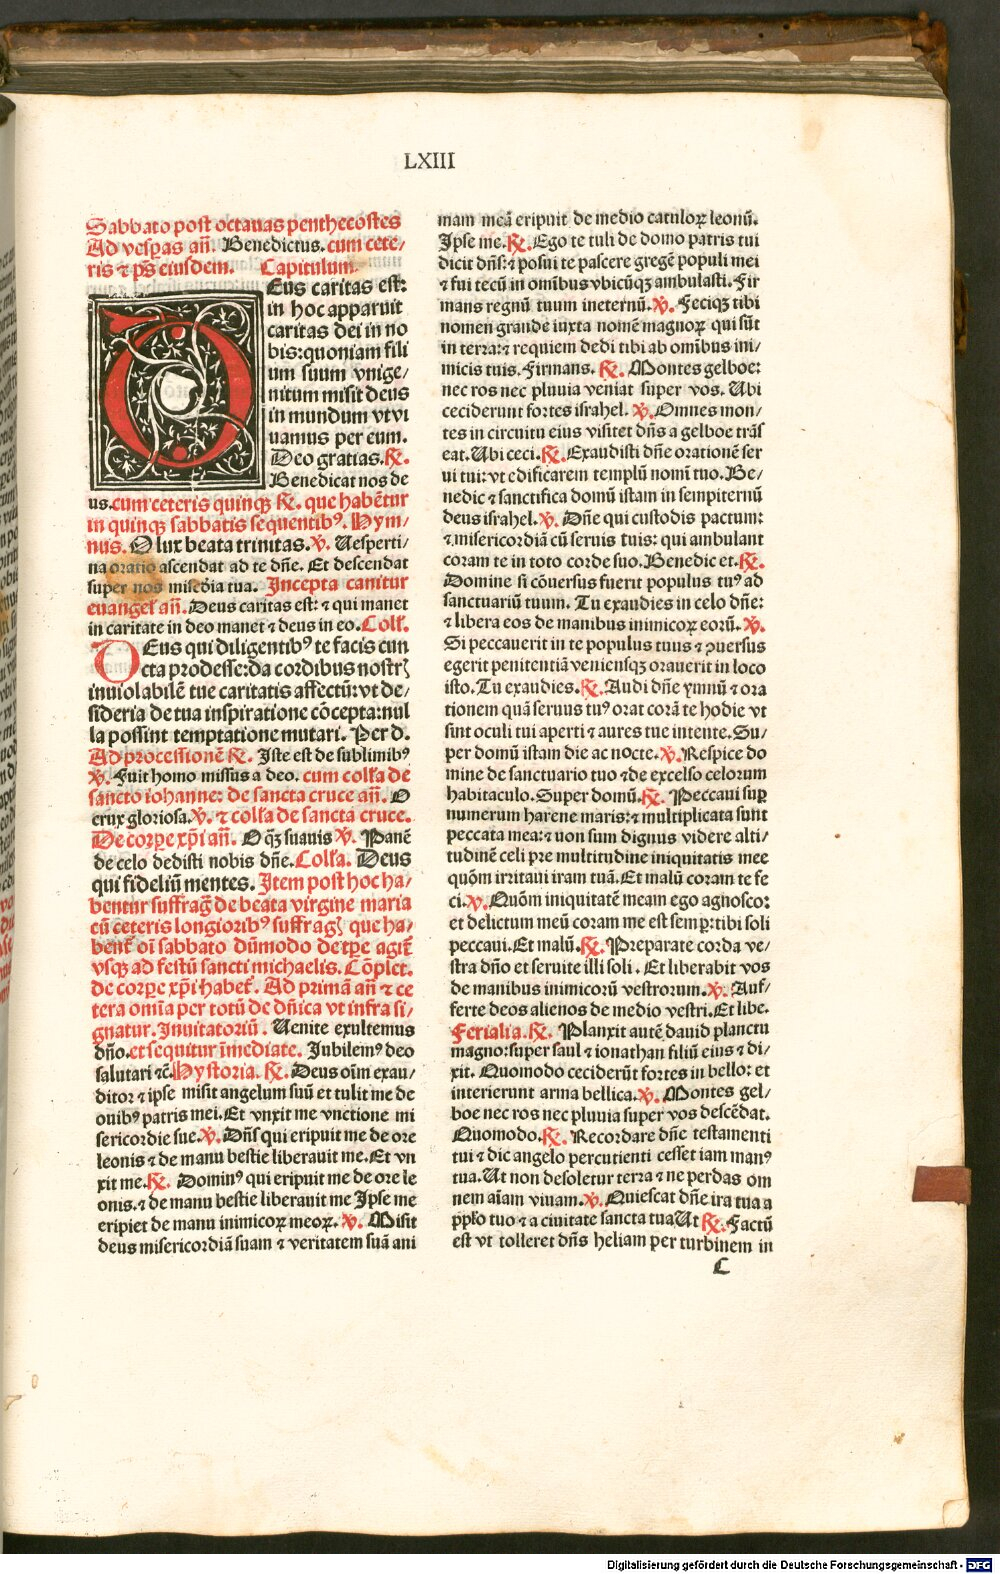 LXIII
Sabbato post octauas penthecostes
Ad vesp̄as añ. Benedictus. cum cete/
ris ⁊ p̄s eiusdem. Capitulum.
DEus caritas est:
in hoc apparuit
caritas dei in no
bis: quoniam fili
um suum vnige/
nitum misit deus
in mundum vt vi
uamus per eum.
Deo gratias. ℟.
Benedicat nos de
us. cum ceteris quinqꝫ ℟. que habētur
in quinqꝫ sabbatis sequentibꝰ. Hym/
nus. O lux beata trinitas. ℣. Uesperti/
na oratio ascendat ad te dñe. Et descendat
super nos mīa tua. Incepta canitur
euangeł añ. Deus caritas est: ⁊ qui manet
in caritate in deo manet ⁊ deus in eo. Colł.
DEus qui diligentibꝰ te facis cun
cta prodesse: da cordibus nostrꝭ
inuiolabilē tue caritatis affectū: vt de/
sideria de tua inspiratione cōcepta: nul
la possint temptatione mutari. Per d.
Ad processionē ℟. Iste est de sublimibꝰ
℣. Fuit homo missus a deo. cum colła de
sancto iohanne: de sancta cruce añ. O
crux gloriosa. ℣. ⁊ colła de sancta cruce.
De corꝑe xp̄i añ. O qꝫ suauis ℣. Panē
de celo dedisti nobis dñe. Colła. Deus
qui fideliū mentes. Item post hoc ha/
bentur suffrag̃ de beata virgine maria
cū ceteris longioribꝰ suffragꝭ que ha/
bent̃ oī sabbato dūmodo de tꝑe agit̃
vsqꝫ ad festū sancti michaelis. Cōplet.
de corꝑe xp̄i habet̃. Ad primā añ ⁊ ce
tera omīa per totū de dñica vt infra si/
gnatur. Inuitatoriū. Uenite exultemus
dño. et sequitur īmediate. Jubilemꝰ deo
salutari ⁊č. Hystoria. ℟. Deus oīm exau/
ditor ⁊ ipse misit angelum suū et tulit me de
ouibꝰ patris mei. Et vnxit me vnctione mi
sericordie sue. ℣. Dñs qui eripuit me de ore
leonis ⁊ de manu bestie liberauit me. Et vn
xit me. ℟. Dominꝰ qui eripuit me de ore le
onis. ⁊ de manu bestie liberauit me Ipse me
eripiet de manu inimicoꝝ meoꝝ. ℣. Misit
deus misericordiā suam ⁊ veritatem suā ani
mam meā eripuit de medio catuloꝝ leonū.
Ipse me. ℟. Ego te tuli de domo patris tui
dicit dñs: ⁊ posui te pascere gregē populi mei
⁊ fui tecū in omībus vbicūqꝫ ambulasti. Fir
mans regnū tuum ineternū. ℣. Feciqꝫ tibi
nomen grande iuxta nomē magnoꝝ qui sūt
in terra: ⁊ requiem dedi tibi ab omībus ini/
micis tuis. Firmans. ℟. Montes gelboe:
nec ros nec pluuia veniat super vos. Ubi
ceciderunt fortes israhel. ℣. Omnes mon/
tes in circuitu eius visitet dñs a gelboe trāſ
eat. Ubi ceci. ℟. Exaudisti dñe orationē ser
ui tui: vt edificarem templū nomī tuo. Be/
nedic ⁊ sanctifica domū istam in sempiternū
deus israhel. ℣. Dñe qui custodis pactum:
⁊ misericordiā cū seruis tuis: qui ambulant
coram te in toto corde suo. Benedic et. ℟.
Domine si cōuersus fuerit populus tuꝰ ad
sanctuariū tuum. Tu exaudies in celo dñe:
⁊ libera eos de manibus inimicoꝝ eorū. ℣.
Si peccauerit in te populus tuus ⁊ ꝯuersus
egerit penitentiā veniensqꝫ orauerit in loco
isto. Tu exaudies. ℟. Audi dñe ymnū ⁊ ora
tionem quā seruus tuꝰ orat corā te hodie vt
sint oculi tui aperti ⁊ aures tue intente. Su/
per domū istam die ac nocte. ℣. Respice do
mine de sanctuario tuo ⁊ de excelso celorum
habitaculo. Super domū. ℟. Peccaui suꝑ
numerum harene maris: ⁊ multiplicata sunt
peccata mea: ⁊ non sum dignus videre alti/
tudinē celi pre multitudine iniquitatis mee
quōm irritaui iram tuā. Et malū coram te fe
ci. ℣. Quōm iniquitatē meam ego agnosco:
et delictum meū coram me est semꝑ: tibi soli
peccaui. Et malū. ℟. Preparate corda ve/
stra dño et seruite illi soli. Et liberabit vos
de manibus inimicorū vestrorum. ℣. Auf/
ferte deos alienos de medio vestri. Et libe.
Ferialia. ℟. Planxit autē dauid planctu
magno: super saul ⁊ ionathan filiū eius ⁊ di/
xit. Quomodo ceciderūt fortes in bello: et
interierunt arma bellica. ℣. Montes gel/
boe nec ros nec pluuia super vos descēdat.
Quomodo. ℟. Recordare dñe testamenti
tui ⁊ dic angelo percutienti cesset iam manꝰ
tua. Ut non desoletur terra ⁊ ne perdas om
nem aīam viuam. ℣. Quiescat dñe ira tua a
pp̄lo tuo ⁊ a ciuitate sancta tua Ut ℟. Factū
est vt tolleret dñs heliam per turbinem in
C
Digitalisierung gefördert durch die Deutsche Forschungsgemeinschaft - DFG